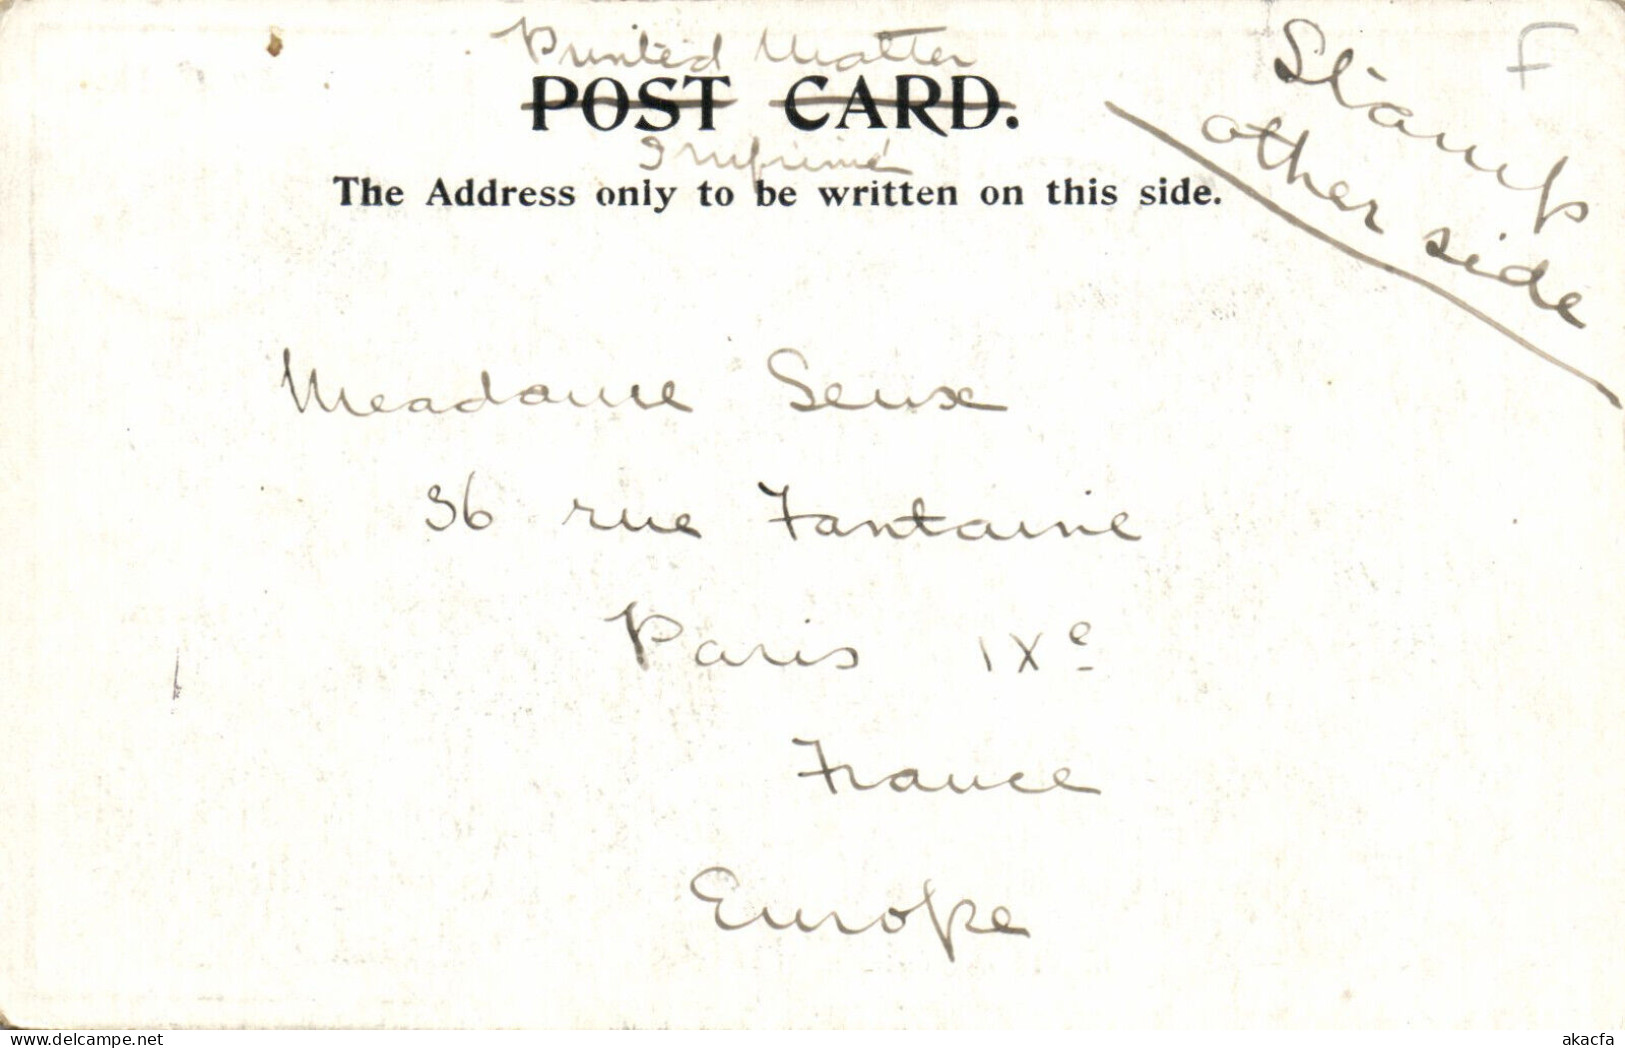 Printed Matter
POST CARD.
Imprimé
The Address only to be written on this side.
Stamp
other side
F
Madame Seux
36 rue Fontaine
Paris IXe
France
Europe
akacfa